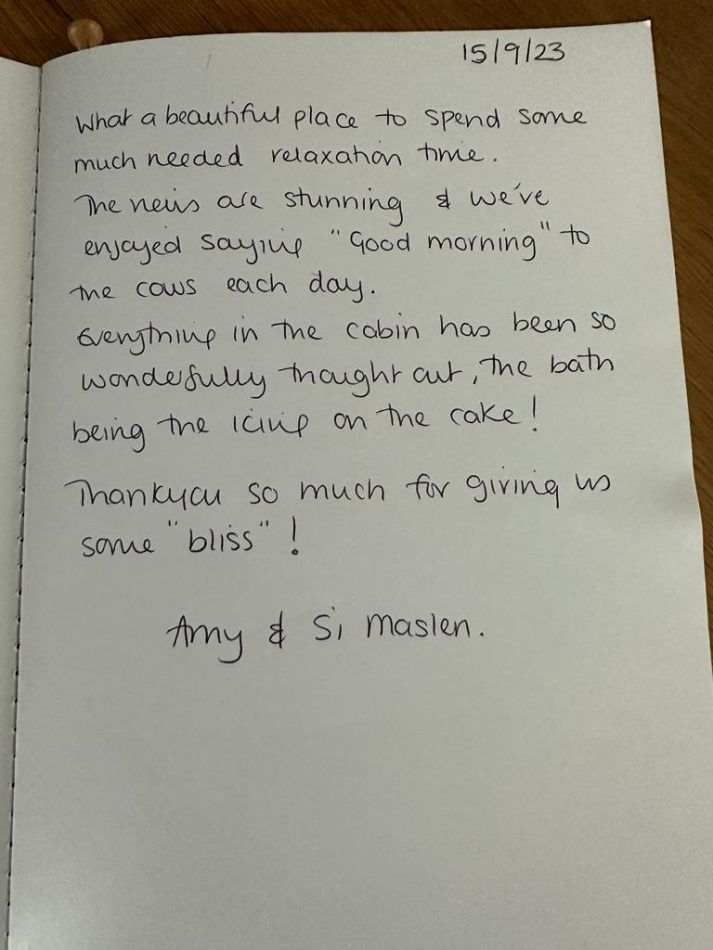 15/9/23
What a beautiful place to spend some
much needed relaxation time.
The veiws are stunning & we've
enjoyed saying "Good morning" to
the cows each day.
Everything in the cabin has been so
wonderfully thought out, the bath
being the icing on the cake!
Thankyou so much for giving us
some "bliss"!
Amy & Si Maslen.